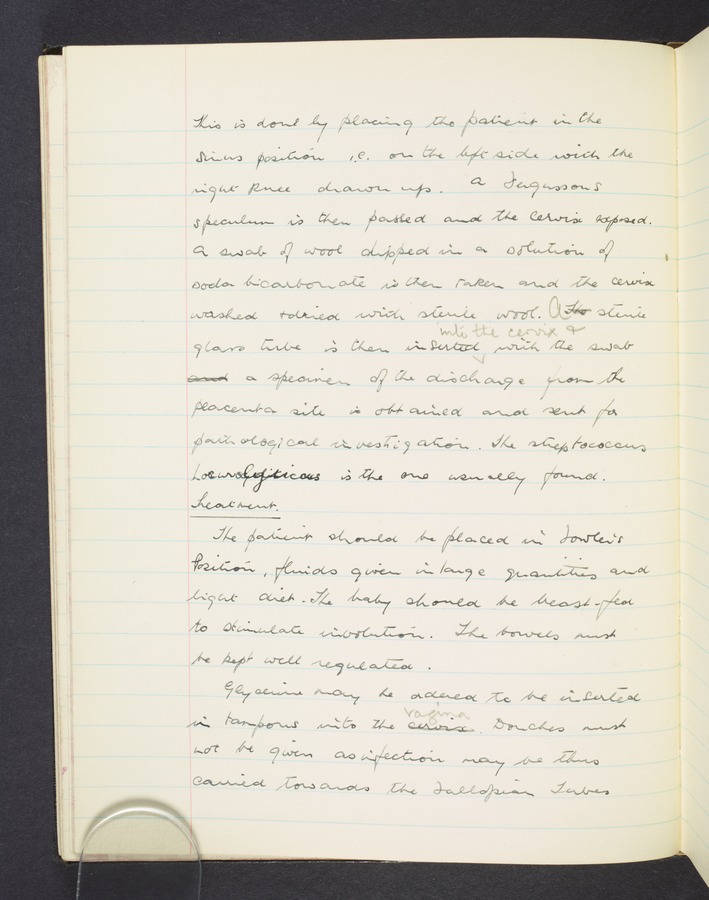 This is done by placing the patient in the
Simms position i.e. on the left side with the
right knee drawn up. A Fergussons
speculum is then passed and the cervix exposed.
A swab of wool dipped in a solution of
soda bicarbonate is then taken and the cervix
washed & dried with sterile wool. A The sterile
into the cervix &
glass tube is then inserted with the swab
and a specimen of the discharge from the
placenta site is obtained and sent for
pathological investigation. The streptococcus
is the one usually found.
Treatment.
The patient should be placed in Fowler's
Position, fluids given in large quantities and
light diet. The baby should be breast-fed
to stimulate involution. The bowels must
be kept well regulated.
Glycerine may be ordered to be inserted
vagina
in tampons into the cervix. Douches must
not be given as infection may be thus
carried towards the Fallopian Tubes